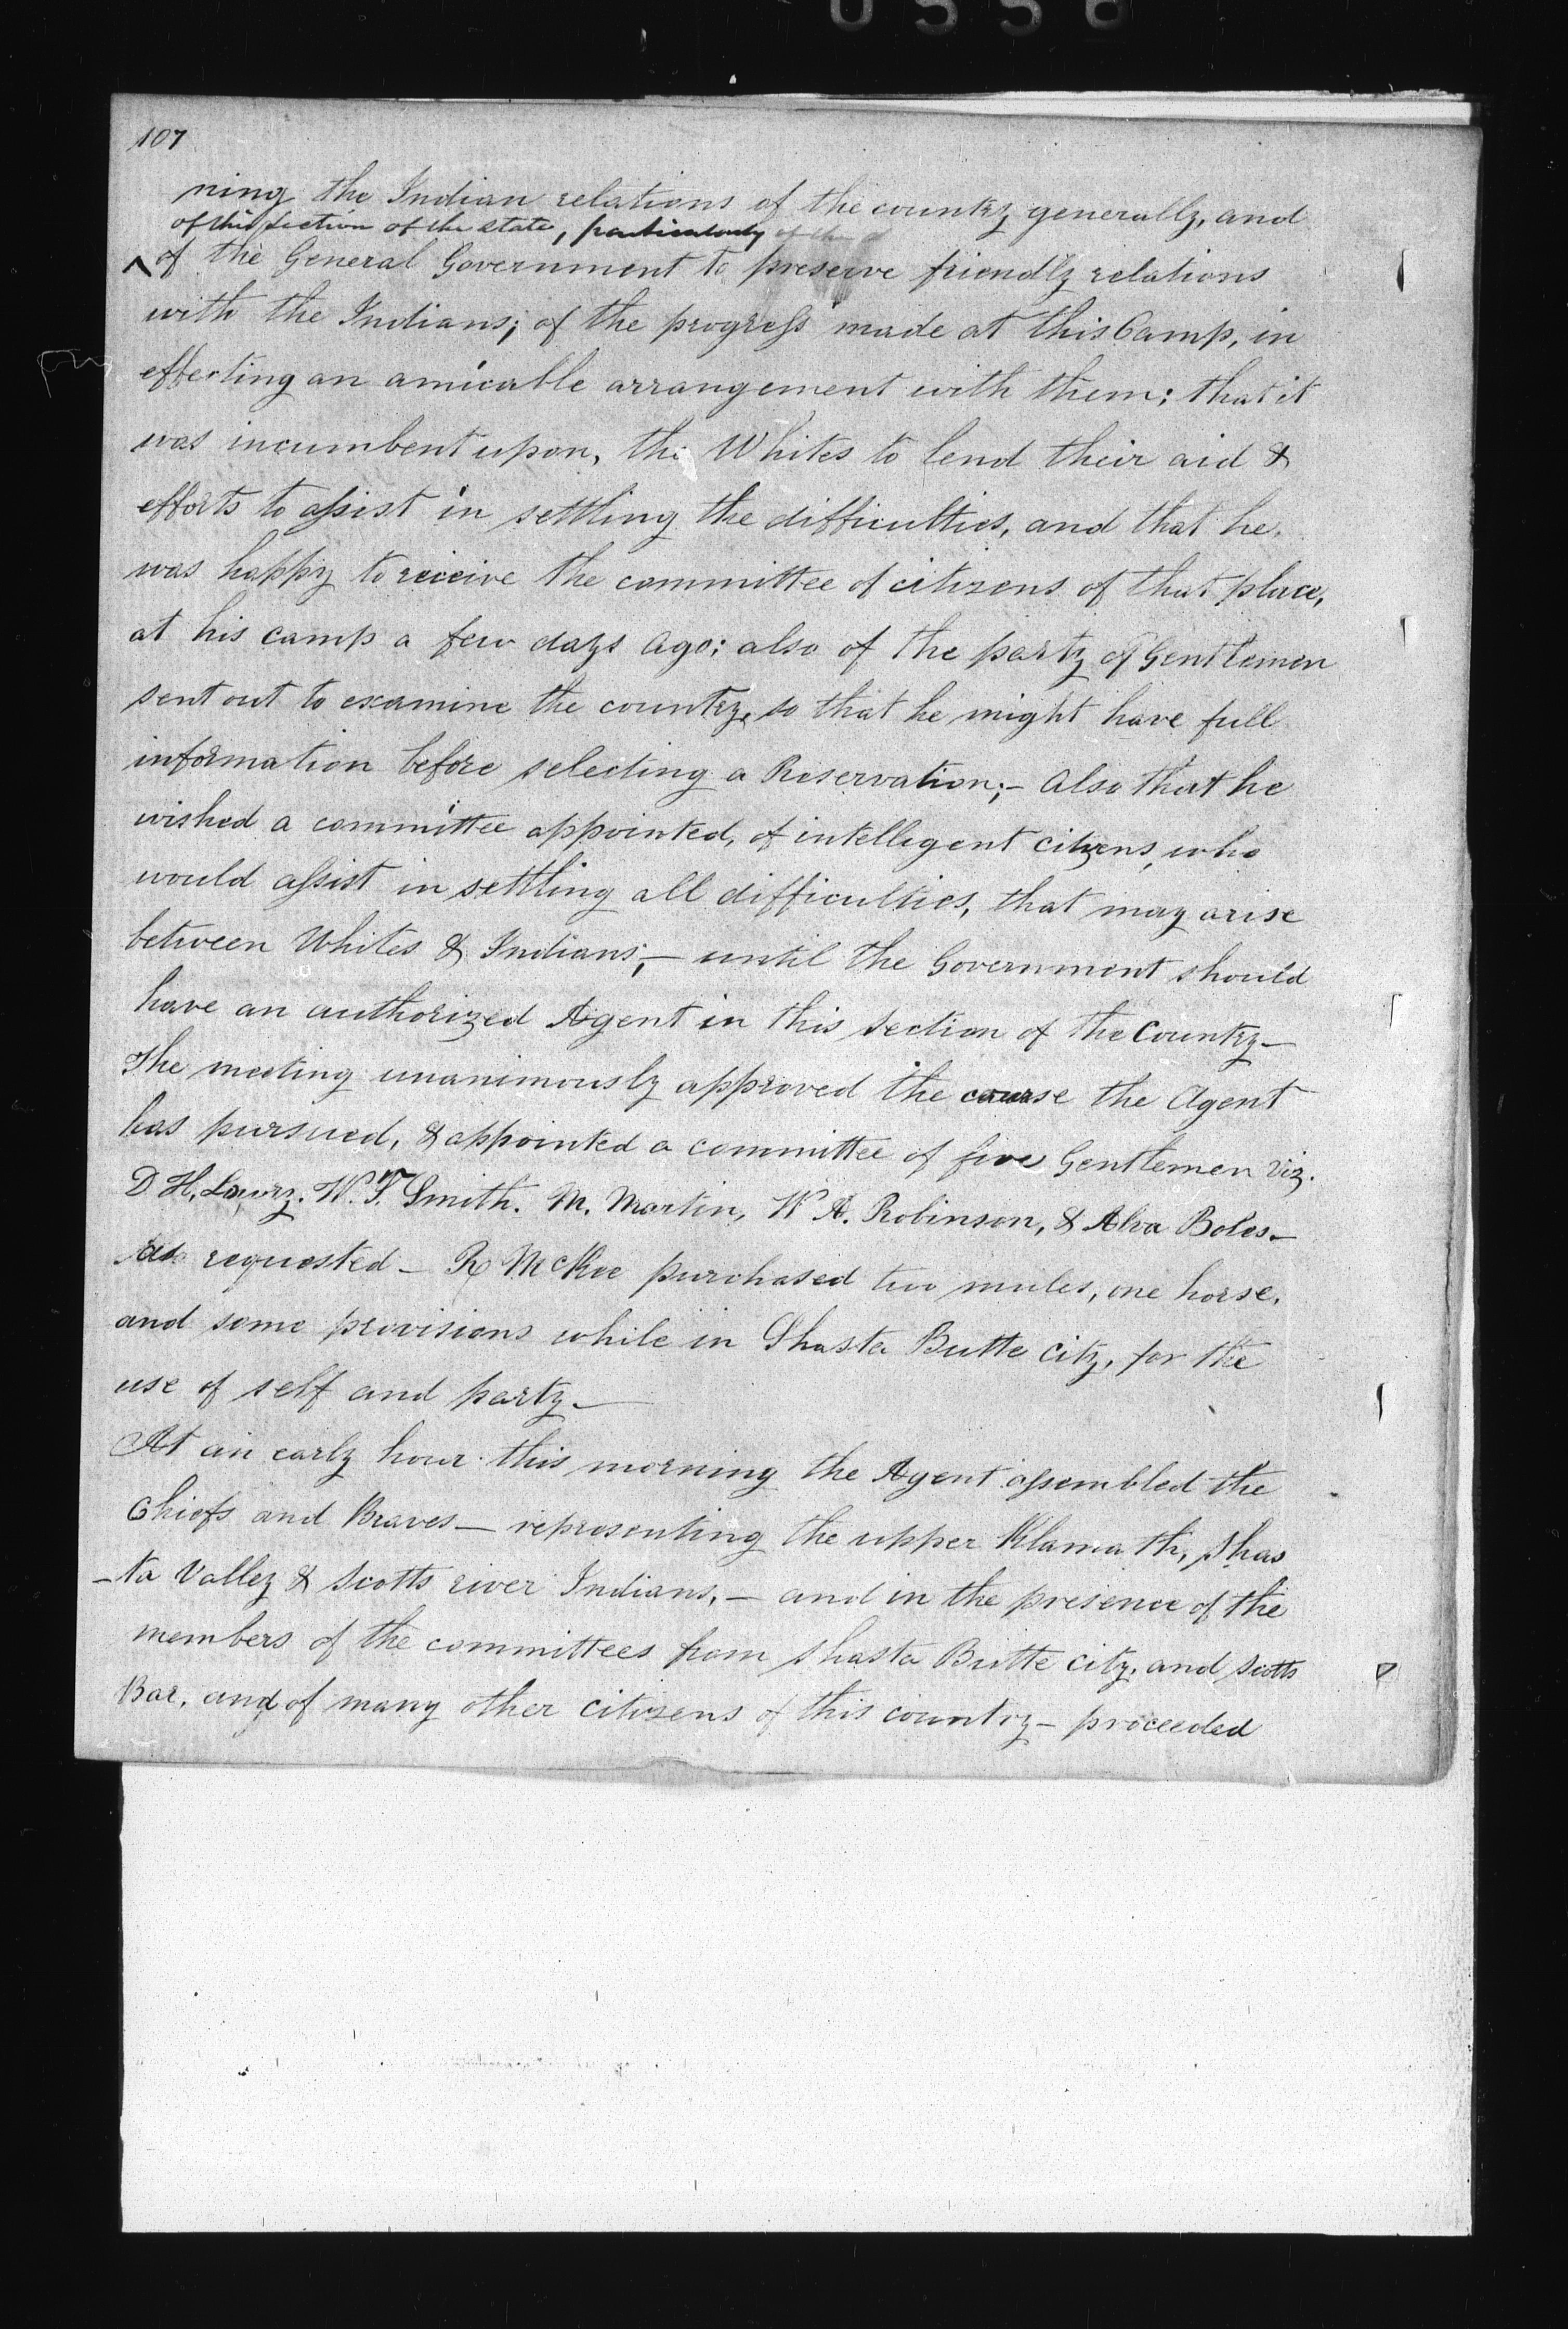 107
ning the Indian relations of the country generally, and
of this section of the state, particularly of the
^ of the General Government to preserve friendly relations
with the Indians; of the progress made at this Camp, in
effecting an amicable arrangement with them; that it
was incumbent upon, the Whites to lend their aid &
efforts to assist in settling the difficulties, and that he,
was happy to receive the committee of citizens of that place,
at his camp a few days ago; also of the party of Gentlemen
sent out to examine the country, so that he might have full
information before selecting a Reservation;- Also that he
wished a committee appointed, of intelligent citizens, who
would assist in settling all difficulties, that may arise
between Whites & Indians;- until the Government should
have an authorized Agent in this section of the Country-
The meeting unanimously approved the course the Agent
has pursued, & appointed a committee of five Gentlemen viz.
D H, Lowry. W. T. Smith. M. Martin, W A. Robinson, & Alva Boles-
As requested - R McKee purchased two mules, one horse,
and some provisions while in Shasta Butte City, for the
use of self and party-
At an early hour this morning the Agent assembled the
Chiefs and Braves- representing the upper Klamath, Shas
-ta Valley & Scotts river Indians,- and in the presence of the
members of the committees from Shasta Butte city, and Scotts
Bar, and of many other citizens of this country- proceeded